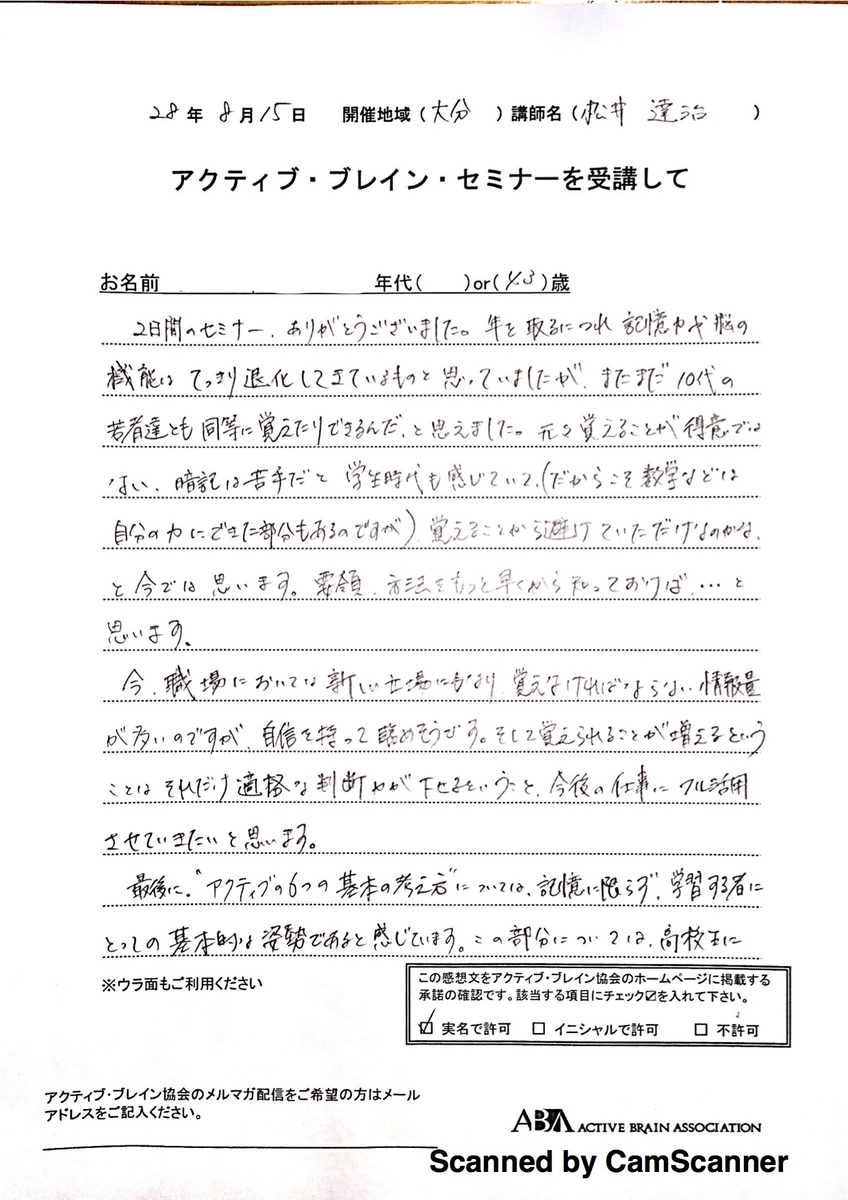 28年 8月15日 開催地域（大分 ）講師名（松井 達治 ）
アクティブ・ブレイン・セミナーを受講して
お名前 年代( )or(43)歳
2日間のセミナー、ありがとうございました。年を取るにつれ 記憶力や脳の
機能は てっきり退化してきているものと思っていましたが、まだまだ10代の
若者達とも同等に覚えたりできるんだ、と思えました。元々覚えることが得意では
ない、暗記は苦手だと 学生時代も感じていて、(だからこそ数学などは
自分の力にできた部分もあるのですが) 覚えることから避けていただけなのかな、
と今では思います。要領、方法をもっと早くから知っておけば、…と
思います。
今、職場においては新しい立場にもなり、覚えなければならない情報量
が多いのですが、自信を持って 臨めそうです。そして覚えられることが増えるという
ことは それだけ適格な判断 が下せるということ、今後の仕事にフル活用
させていきたいと思います。
最後に、"アクティブの6つの基本の考え方"については、記憶に限らず、学習する者に
とっての基本的な姿勢であると感じています。この部分については、高校生に
※ウラ面もご利用ください
この感想文をアクティブ・ブレイン協会のホームページに掲載する
承諾の確認です。該当する項目にチェック☑を入れて下さい。
☑ 実名で許可 □ イニシャルで許可 □ 不許可
アクティブ・ブレイン協会のメルマガ配信をご希望の方はメール
アドレスをご記入ください。
ABA ACTIVE BRAIN ASSOCIATION
Scanned by CamScanner